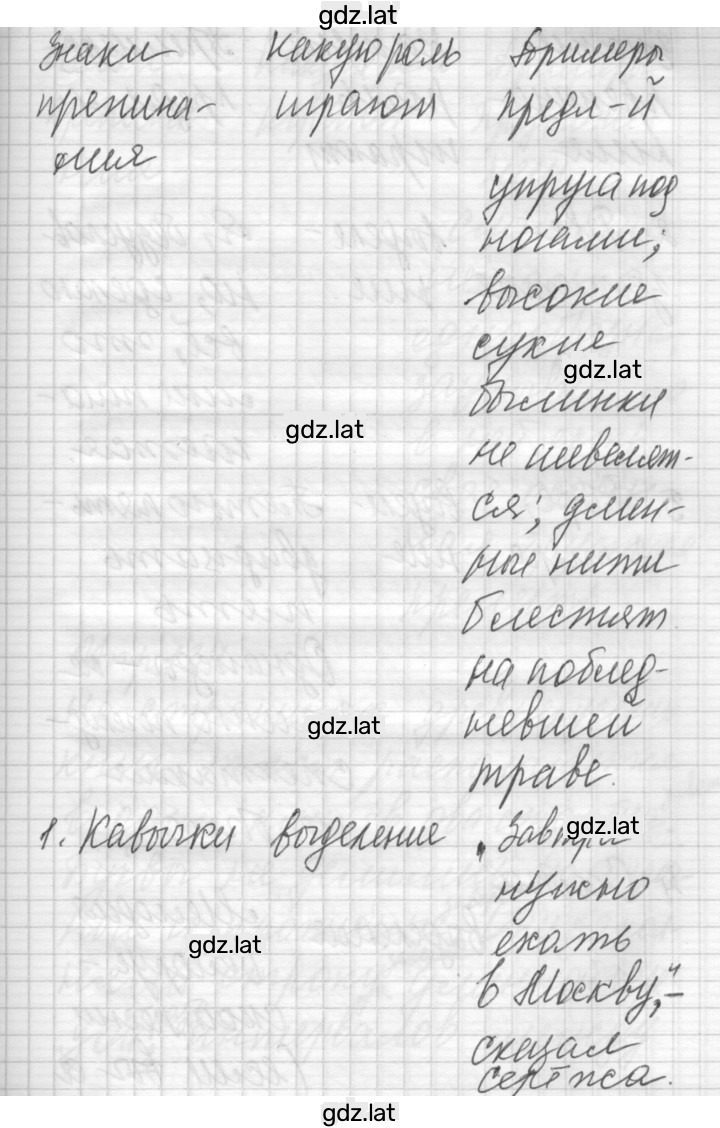 gdz.lat
Знаки какую роль Примеры
препина- играют предл-й
ния
упруга под
ногами;
высокие
сухие
gdz.lat
былинки
gdz.lat
не шевелят-
ся; длин-
ные нити
блестят
на поблед-
gdz.lat
невшей
траве.
1. Кавычки выделение "Завтра
gdz.lat
нужно
gdz.lat
ехать
в Москву," -
сказал
gdz.lat